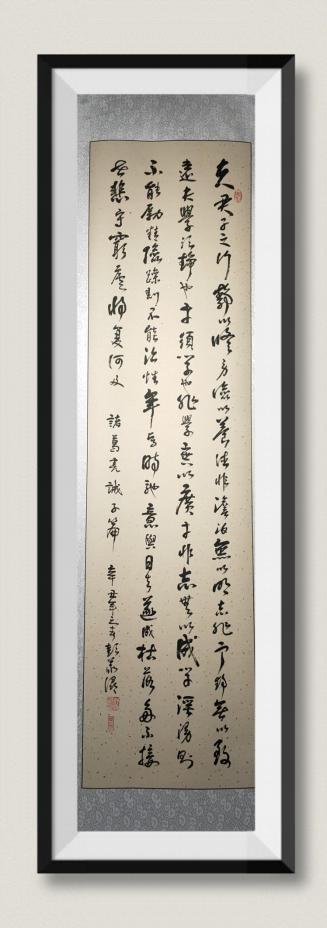 夫君子之行静以修身儉以養德非澹泊無以明志非宁静無以致
遠夫學須静也才須学也非學無以廣才非志無以成学淫漫則
不能勵精險躁則不能治性年與時馳意與日去遂成枯落多不接
世悲守窮廬將复何及 諸葛亮誡子篇 辛丑年之春彭